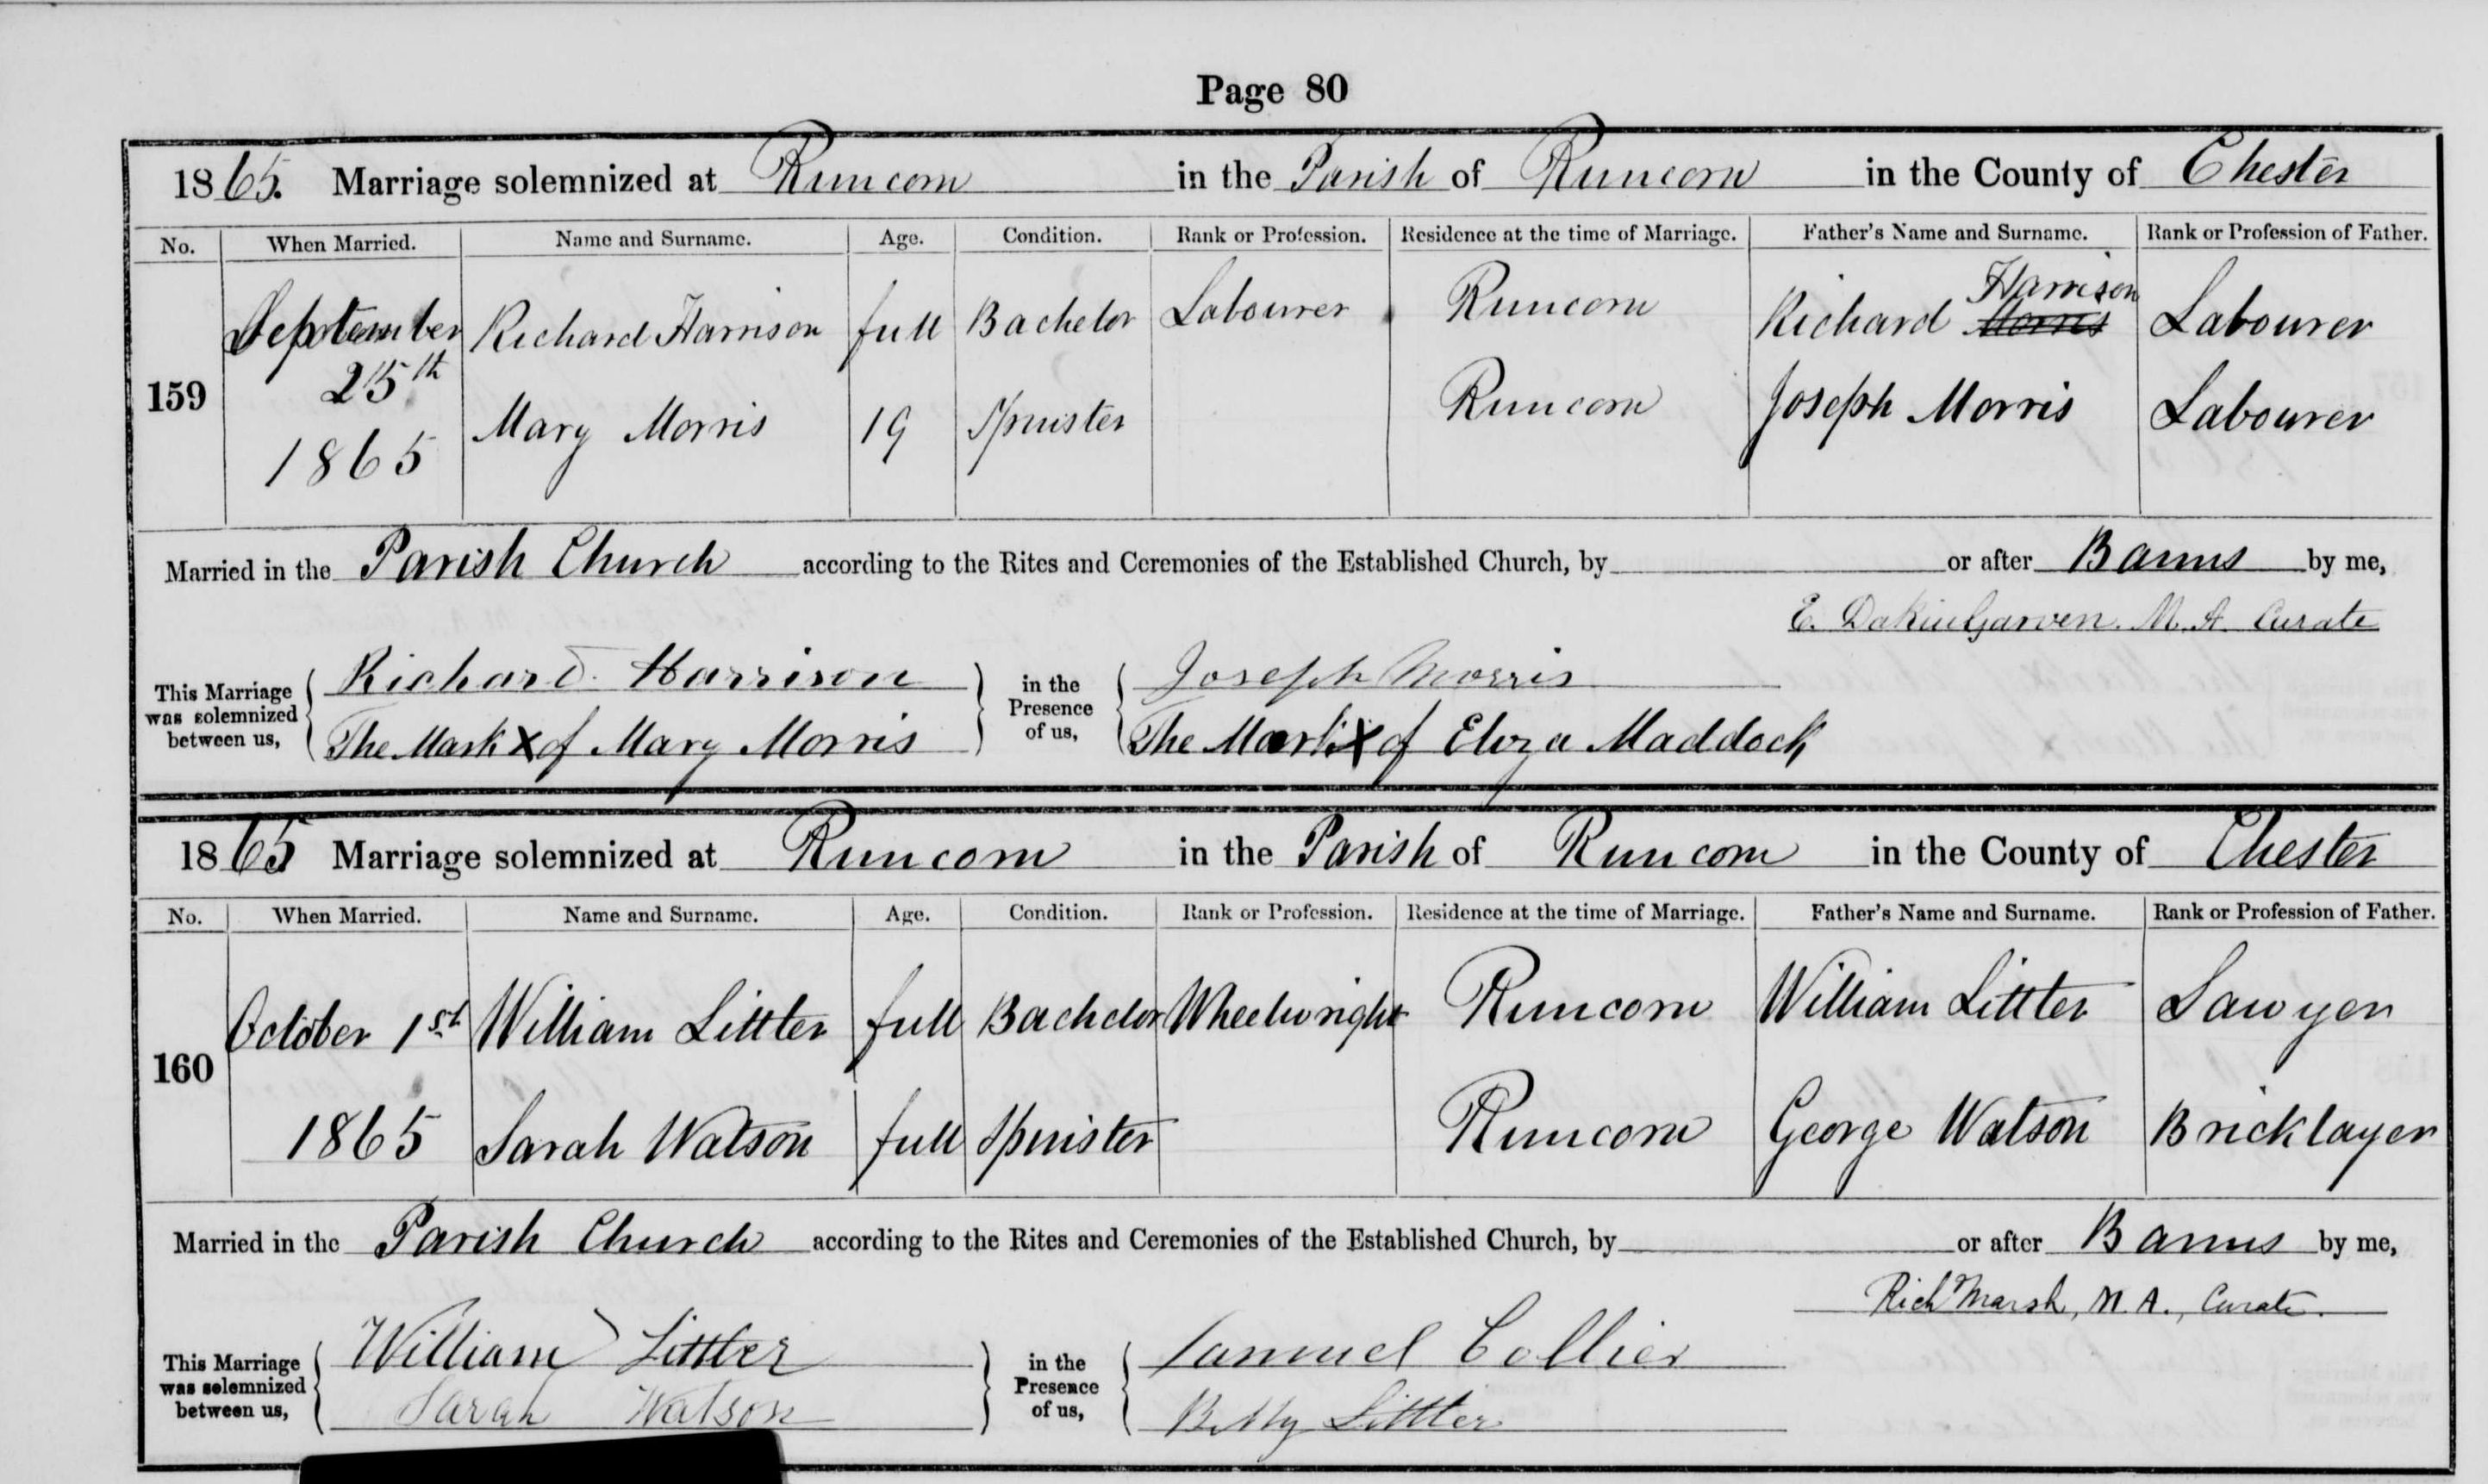 Page 80
1865. Marriage solemnized at Runcorn in the Parish of Runcorn in the County of Chester
No. When Married. Name and Surname. Age. Condition. Rank or Profession. Residence at the time of Marriage. Father's Name and Surname. Rank or Profession of Father.
Harrison
September Richard Harrison full Bachelor Labourer Runcorn Richard Morris Labourer
159 25th Mary Morris 19 Spinster Runcorn Joseph Morris Labourer
1865
Married in the Parish Church according to the Rites and Ceremonies of the Established Church, by or after Banns by me,
E. Dakin Garven. M. A. Curate
This Marriage was solemnized between us, Richard Harrison in the Presence of us, Joseph Morris
The Mark X of Mary Morris The Mark X of Eliza Maddock
1865 Marriage solemnized at Runcorn in the Parish of Runcorn in the County of Chester
No. When Married. Name and Surname. Age. Condition. Rank or Profession. Residence at the time of Marriage. Father's Name and Surname. Rank or Profession of Father.
October 1st William Littler full Bachelor Wheelwright Runcorn William Littler Sawyer
160
1865 Sarah Watson full Spinster Runcorn George Watson Bricklayer
Married in the Parish Church according to the Rites and Ceremonies of the Established Church, by or after Banns by me,
Richd Marsh, M. A., Curate.
This Marriage was solemnized between us, William Littler in the Presence of us, Samuel Collier
Sarah Watson Betty Littler